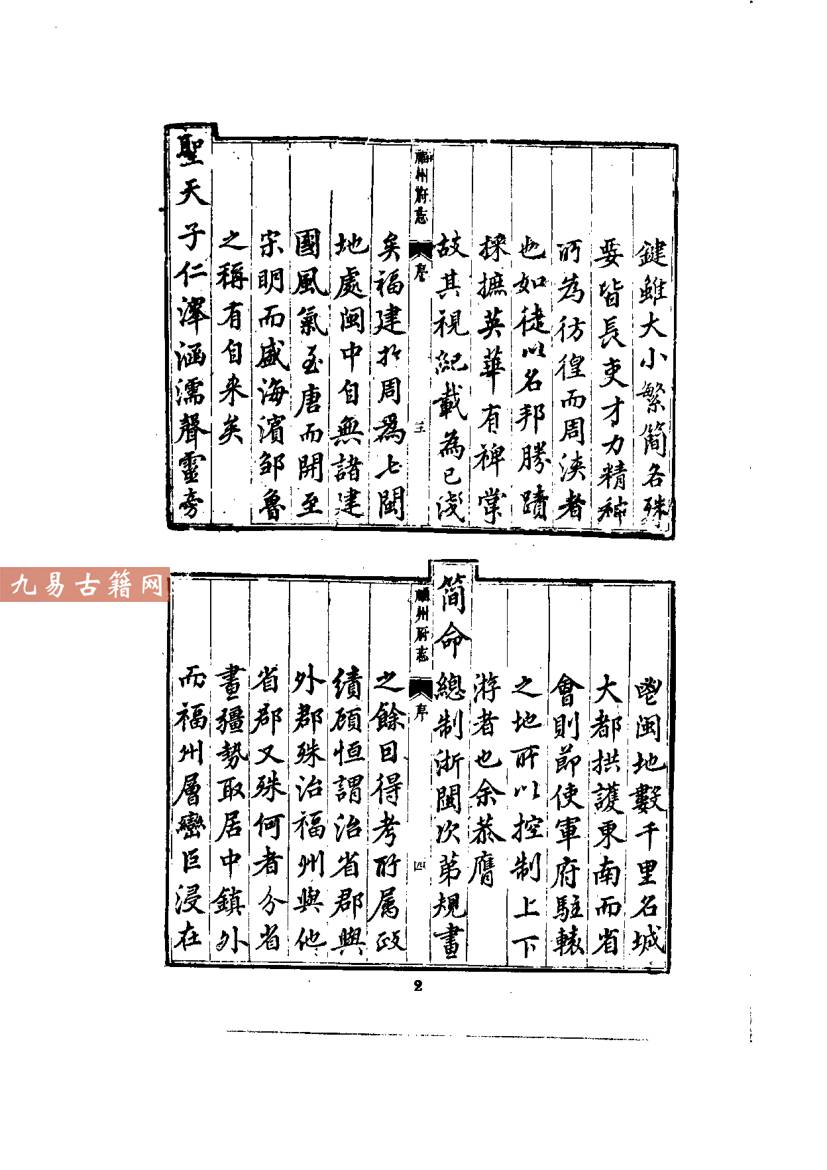 鍵雖大小繁简各殊
要皆長吏才力精神
所為彷徨而周浹者
也如徒以名邦勝蹟
採摭英華有裨掌
故其視紀載為已淺
福州府志
序
三
矣福建於周為七閩
地處閩中自無諸建
國風氣至唐而開至
宋明而盛海濱邹魯
之稱有自来矣
聖天子仁澤涵濡聲靈旁
鬯閩地數千里名城
大都拱護東南而省
會則節使軍府駐轅
之地所以控制上下
游者也余恭膺
简命總制浙閩次第規畫
福州府志
序
四
之餘因得考所属政
績顧恒謂治省郡與
外郡殊治福州與他
省郡又殊何者分省
畫疆勢取居中鎮外
而福州層巒巨浸在
2
九易古籍网